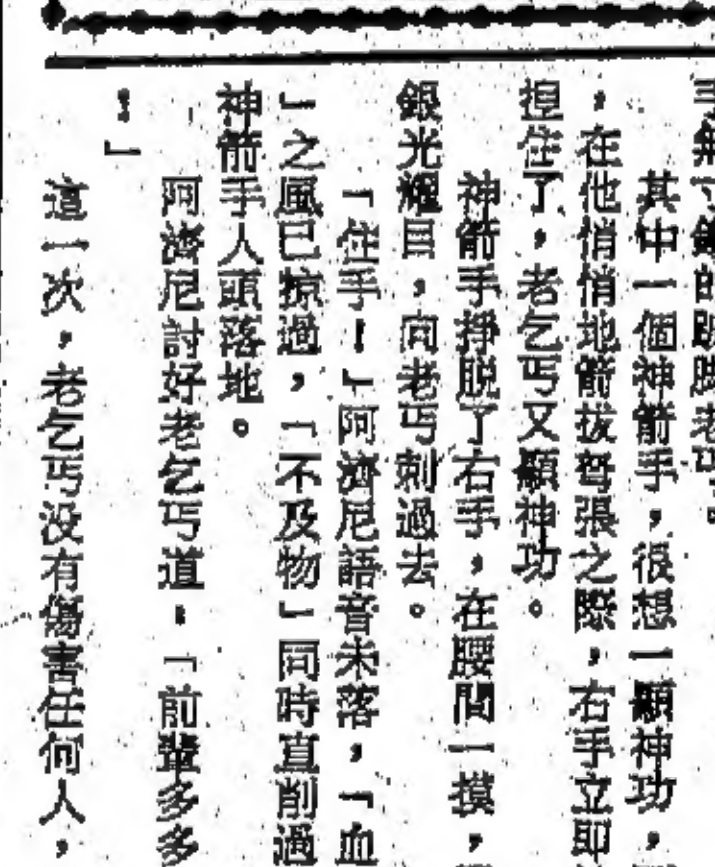 手無寸鐵的跛脚老丐。
其中一個神箭手，很想一顯神功，
，在他悄悄地箭拔弩張之際，右手立即
捏住了，老乞丐又顯神功。
神箭手掙脫了右手，在腰間一摸，
銀光耀目，向老丐刺過去。
「住手！」阿濟尼語音未落，「血
」之風已掠過，「不及物」同時直削過
神箭手人頭落地。
阿濟尼討好老乞丐道：「前輩多多
！」
這一次，老乞丐没有傷害任何人，